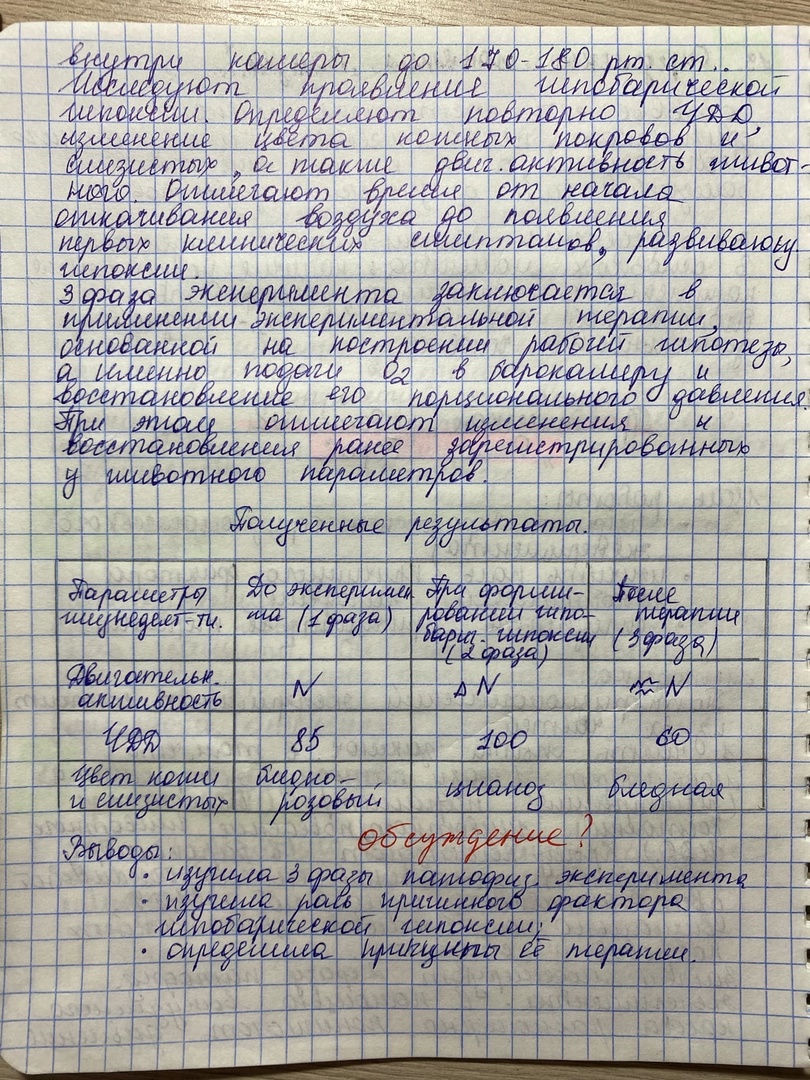 внутри камеры до 170-180 рт. ст..
Исследуют проявление гипобарической
гипоксии. Определяют повторно ЧДД,
изменение цвета кожных покровов и
слизистых, а также двиг. активность живот-
ного. Отмечают время от начала
откачивания воздуха до появления
первых клинических симптомов, развивающ
гипоксии.
3 фаза эксперимента заключается в
применении экспериментальной терапии,
основанной на построении рабочей гипотезы,
а именно подачи O2 в барокамеру и
восстановление его порционального давления
При этом отмечают изменения и
восстановления ранее зарегистрированных
у животного параметров.
Полученные результаты.
Параметры жизнедеят-ти.
До эксперимен та (1 фаза)
При форми- ровании гипо- барич. гипоксии (2 фаза)
После терапии (3 фаза)
Двигательн. активность
N
△ N
≈ N
ЧДД
85
100
60
Цвет кожи и слизистых
бледно- розовый
цианоз
бледная
Обсуждение?
Выводы:
• изучила 3 фазы патофиз. эксперимента
• изучила роль причинного фактора
гипобарической гипоксии;
• определила принципы её терапии.